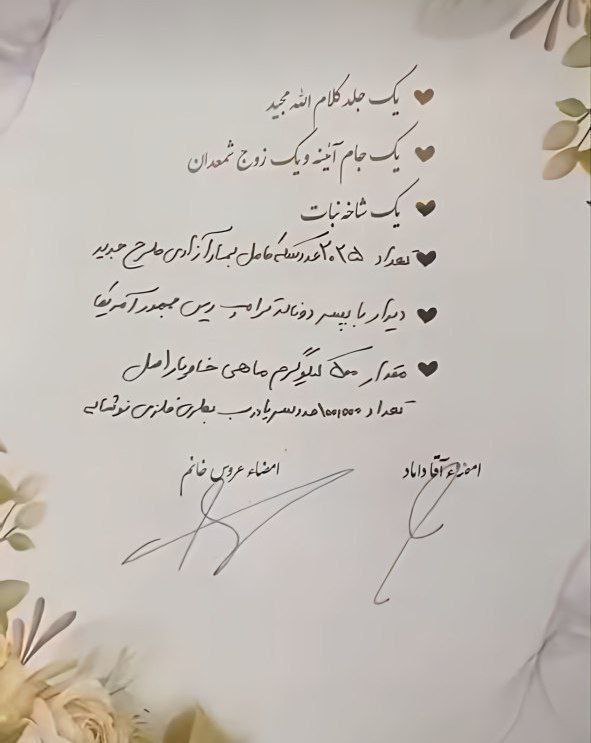 یک جلد کلام الله مجید
یک جام آئینه و یک زوج شمعدان
یک شاخه نبات
تعداد ۲۰۲۵ عدد سکه کامل بهار آزادی طرح جدید
دیدار با پسر دونالد ترامپ رییس جمهور آمریکا
مقدار ۵۰۰ کیلوگرم ماهی خاویار اصل
تعداد ۱۰۰،۰۰۰ عدد درب بطری فلزی نوشابه
امضاء آقا داماد
امضاء عروس خانم